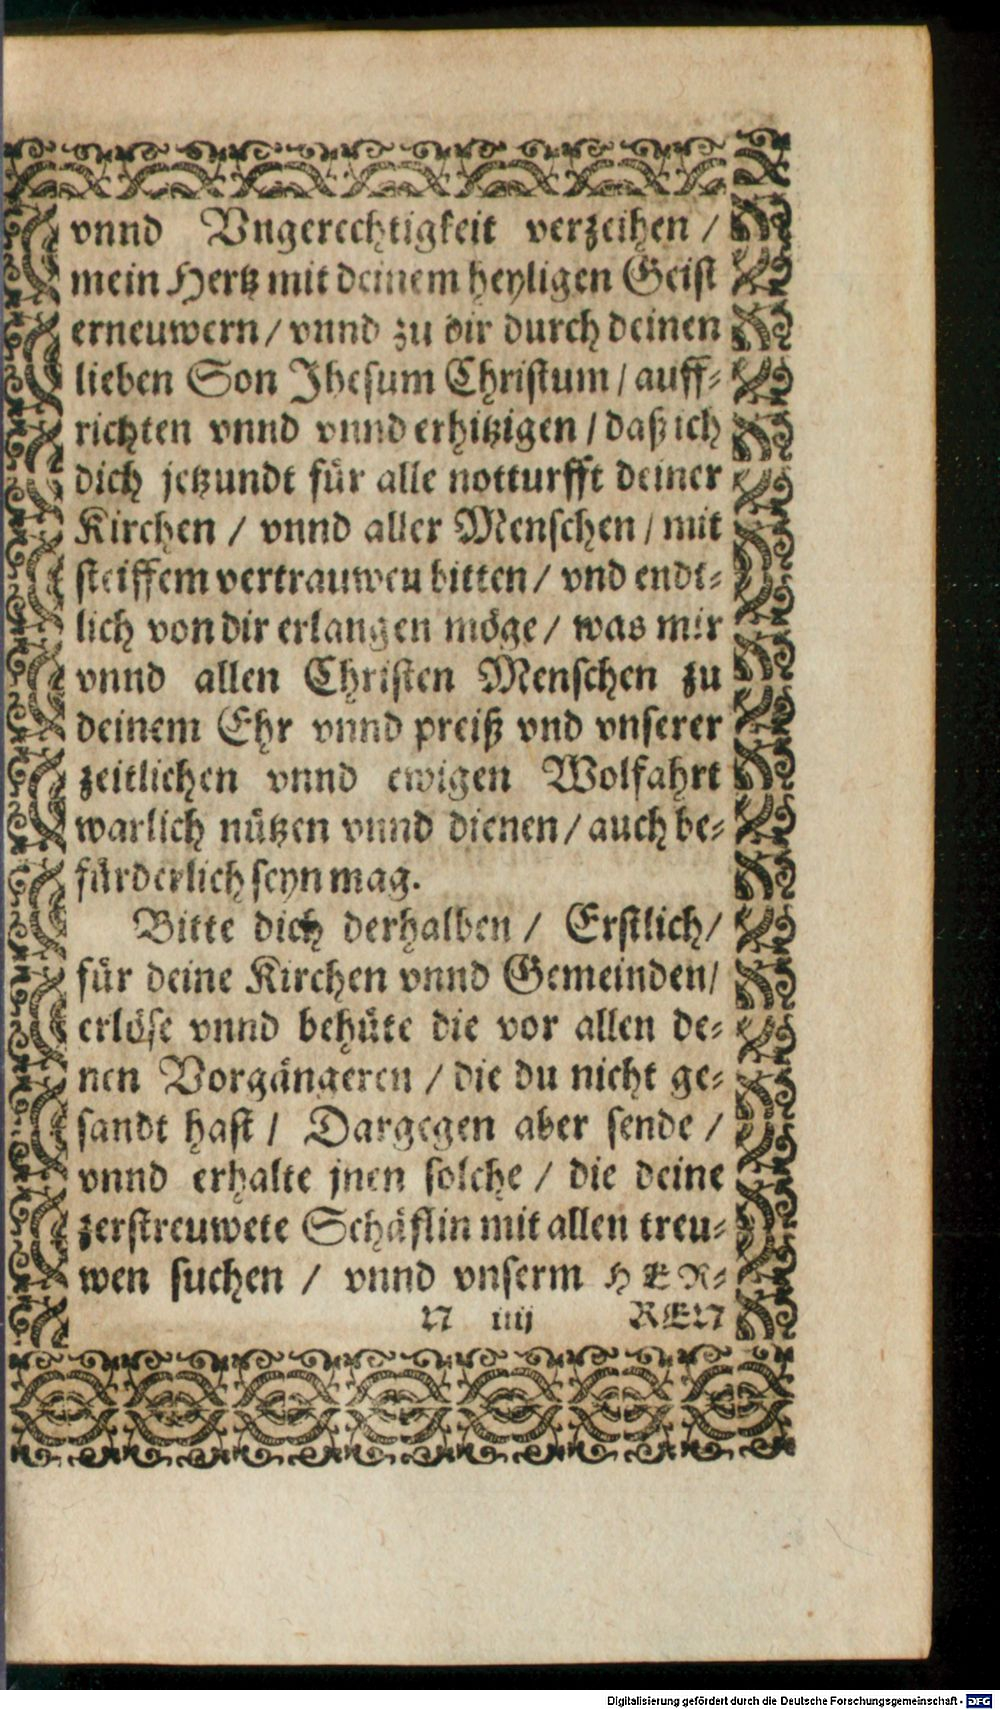 vnnd Vngerechtigkeit verzeihen /
mein Hertz mit deinem heyligen Geist
erneuwern / vnnd zu dir durch deinen
lieben Son Jhesum Christum / auff-
richten vnnd vnnd erhitzigen / daß ich
dich jetzundt für alle notturfft deiner
Kirchen / vnnd aller Menschen / mit
steiffem vertrauweu bitten / vnd endt-
lich von dir erlangen möge / was mir
vnnd allen Christen Menschen zu
deinem Ehr vnnd preiß vnd vnserer
zeitlichen vnnd ewigen Wolfahrt
warlich nützen vnnd dienen / auch be-
fürderlich seyn mag.
Bitte dich derhalben / Erstlich /
für deine Kirchen vnnd Gemeinden /
erlöse vnnd behüte die vor allen de-
nen Vorgängeren / die du nicht ge-
sandt hast / Dargegen aber sende /
vnnd erhalte jnen solche / die deine
zerstreuwete Schäflin mit allen treu-
wen suchen / vnnd vnserm HER-
N iiij REN
Digitalisierung gefördert durch die Deutsche Forschungsgemeinschaft - DFG